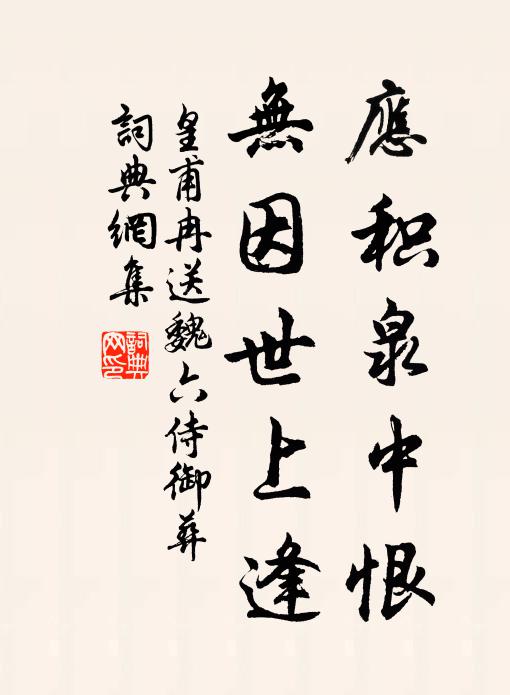 應积泉中恨
無因世上逢
皇甫冉送魏六侍御葬
詞典網集
詞典網印